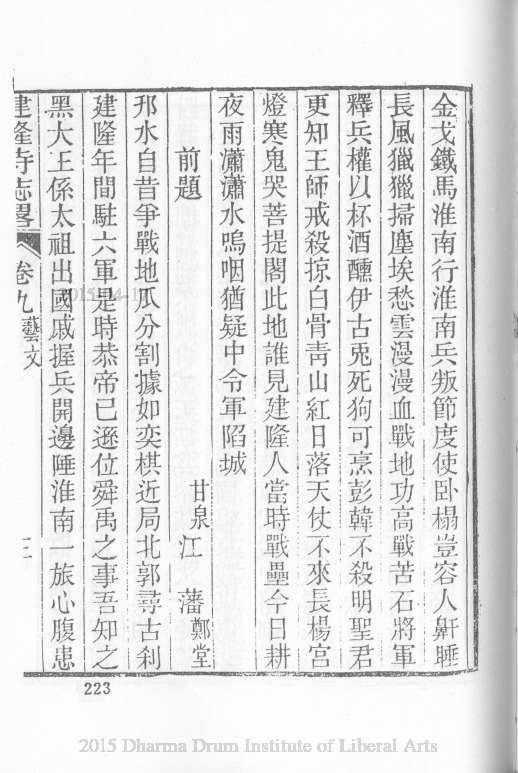 金戈鐵馬淮南行淮南兵叛節度使卧榻豈容人鼾睡
長風獵獵掃塵埃愁雲漫漫血戰地功高戰苦石將軍
釋兵權以杯酒醺伊古兎死狗可烹彭韓不殺明聖君
更知王師戒殺掠白骨靑山紅日落天仗不來長楊宮
燈寒鬼哭菩提閣此地誰見建隆人當時戰壘今日耕
夜雨瀟瀟水嗚咽猶疑中令軍陷城
前題
甘泉江 藩鄭堂
邗水自昔爭戰地瓜分割據如奕棋近局北郭尋古刹
建隆年間駐六軍是時恭帝已遜位舜禹之事吾知之
黑大王係太祖出國戚握兵開邊陲淮南一旅心腹患
建隆寺志畧 卷九 藝文 三
223
2015 Dharma Drum Institute of Liberal Arts